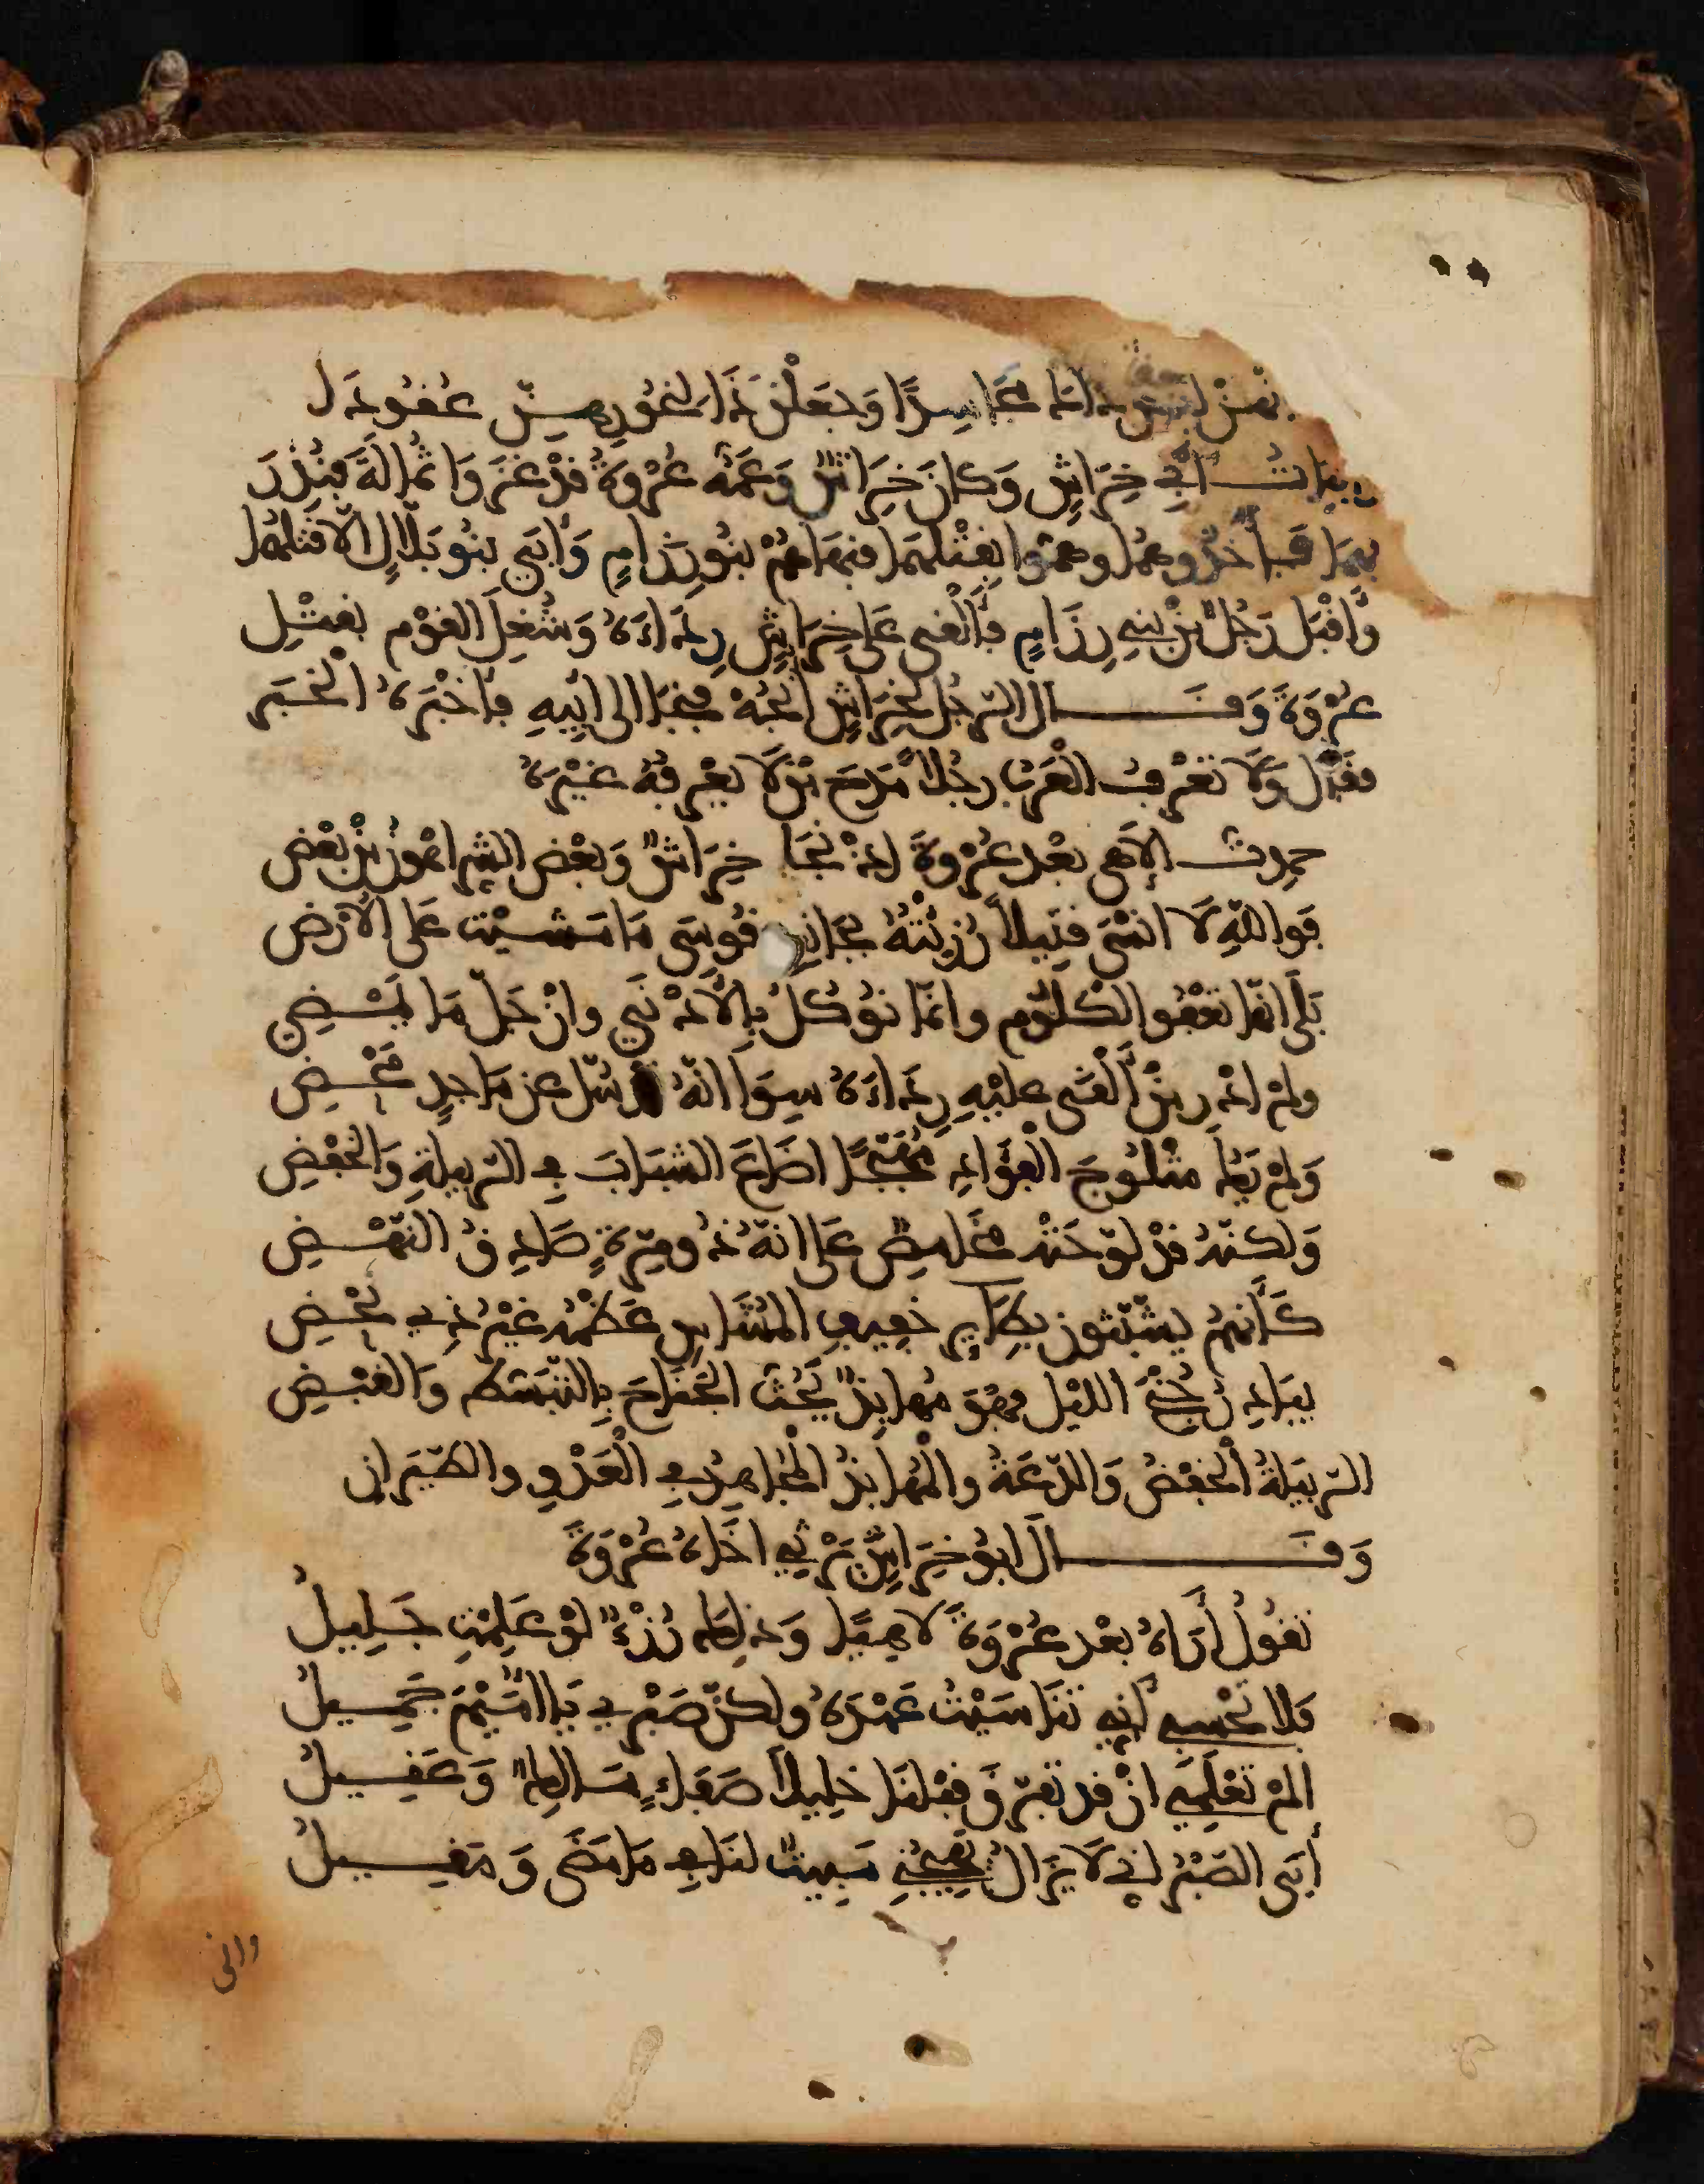 عامرا وجعلن ذا العوريمين عقودا
أبيات أبي خراش وكان خراش وعمه عروة قد غزوا ثمالة فنذر
بهما فأخذوهما وهموا بقتلهما فنهاهم بنو رزام وأبى بنو بلال إلا قتلهما
وأقبل رجل من بني رزام فألقى على خراش رداءه وشغل القوم بقتل
عروة وقال الرجل لخراش انجه فنجا إلى أبيه فأخبره الخبر
فقال ولا تعرف العرب رجلا مدح من لا يعرفه غيره
حمدت إلاهي بعد عروة إذ نجا خراش وبعض الشر اهون من بعض
فوالله لا انسى قتيلا رزئته بجانب قوسى ما مشيت على الأرض
بلى انها تعفو الكلوم وانما نوكل بالأدنى وان جل ما يمضي
ولم ادر من ألقى عليه رداءه سوا انه قد سل عن ماجد محض
ولم يك مثلوج الفؤاد مهبجا اضاع الشباب في الربيلة والخفض
ولكنه قد لوحته مخامص على انه ذو مرة صادق النهض
كأنهم يشبثون بطاير خفيف المشاش عظمه غير ذي نحض
يبادر جنح الليل فهو مهابذ يحث الجناح بالتبسط والقبض
الربيلة الخفض والدعة والمهابذ المجاهد في العدو والطيران
وقال ابو خراش يرثي اخاه عروة
تقول أراه بعد عروة لاهيا وذلك رزء لو علمت جليل
فلا تحسبي أني تناسيت عهده ولكن صبري يا اميم جميل
الم تعلمي ان قد تفرق قبلنا خليلا صفاء مالك وعقيل
أبى الصبر اني لا يزال يهيجني مبيت لنا في ما مضى ومقيل
واني